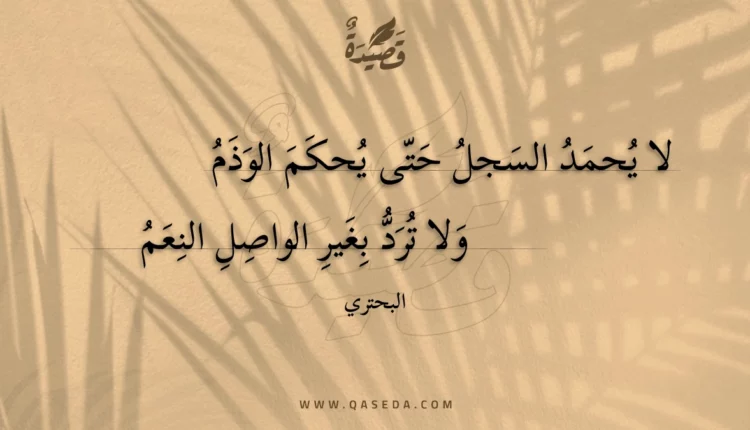 قَصِيْدَةٌ
لا يُحمَدُ السَجلُ حَتّى يُحكَمَ الوَذَمُ
وَلا تُرَدُّ بِغَيرِ الواصِلِ النِعَمُ
البحتري
WWW.QASEDA.COM